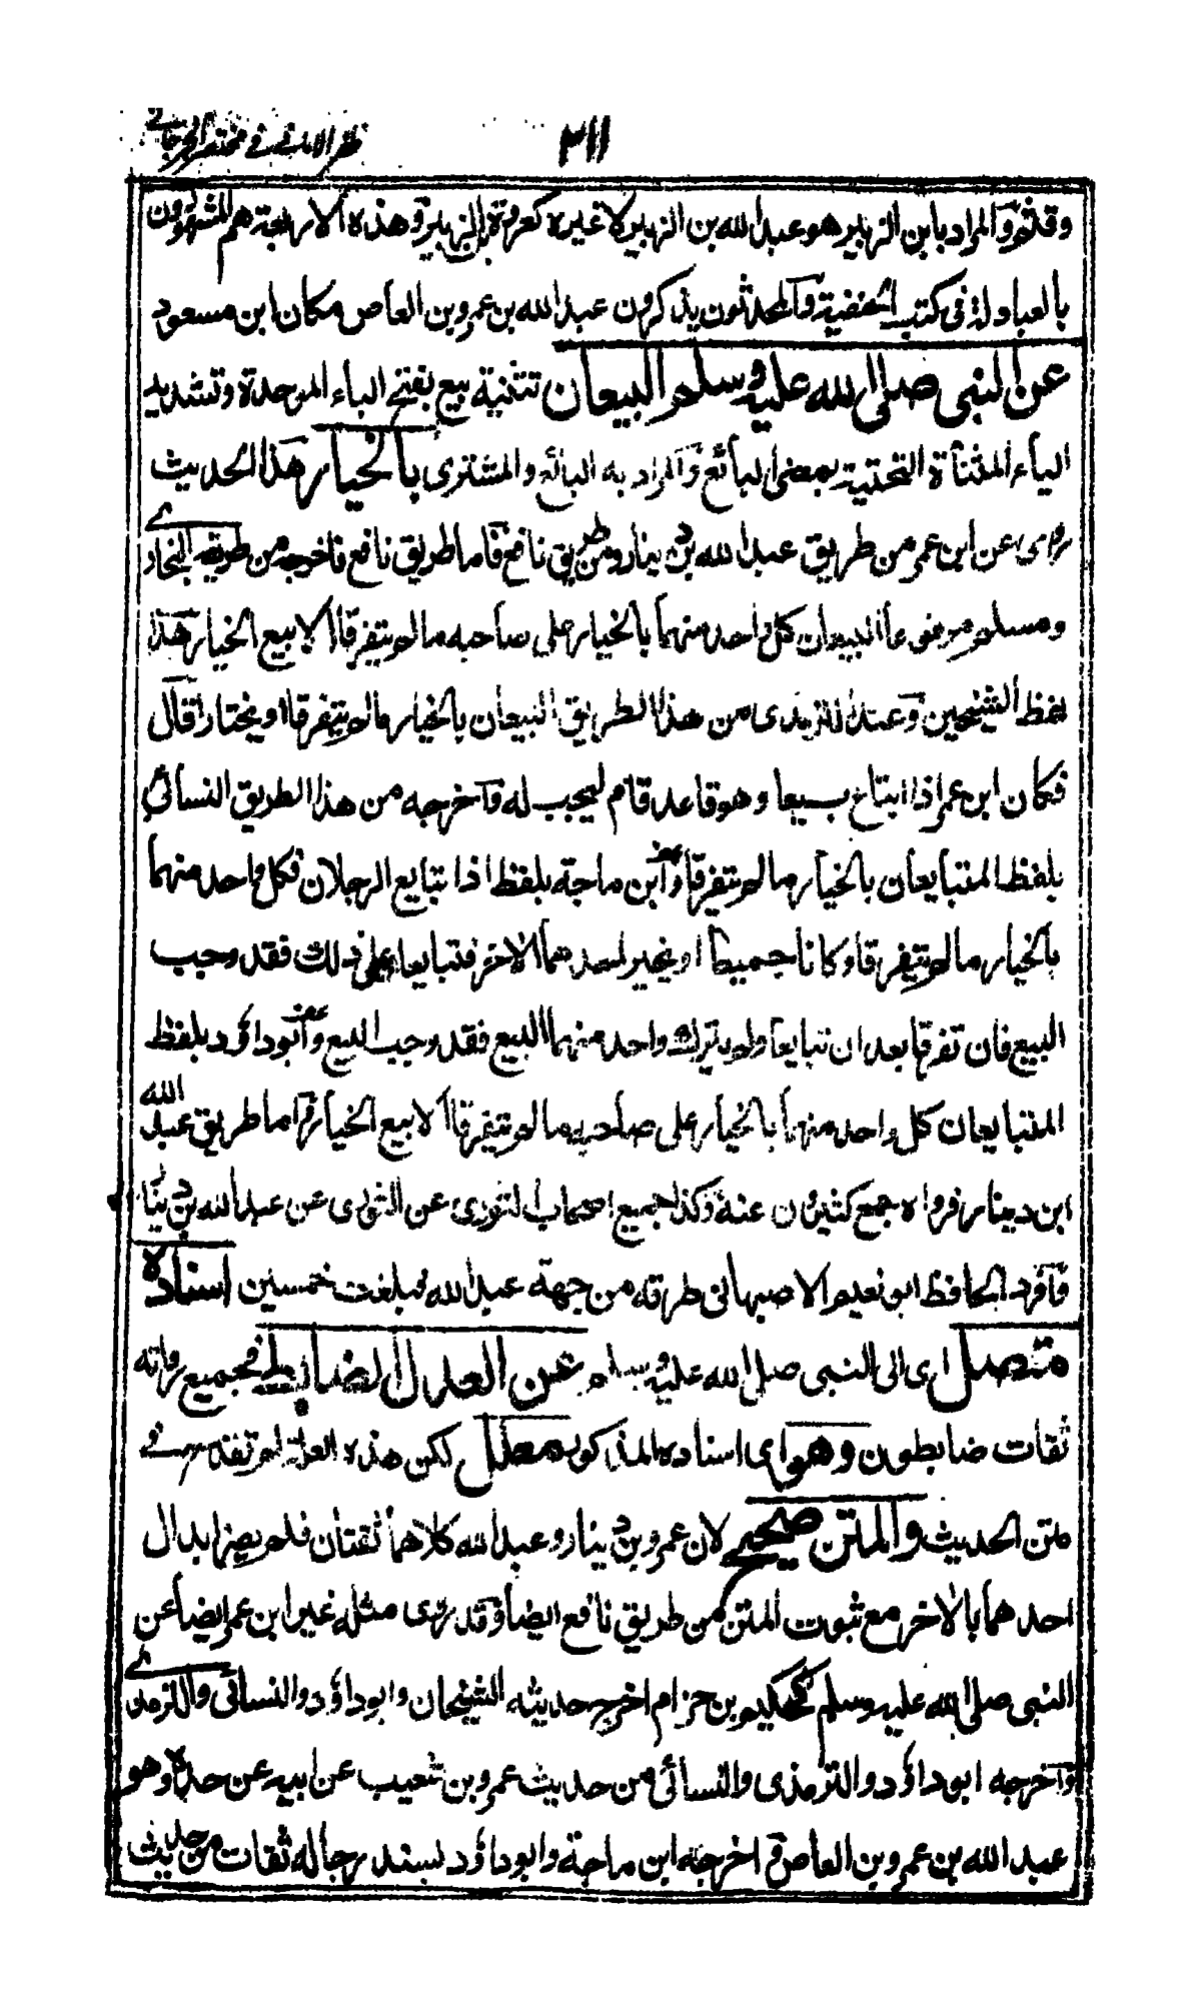 ظفر الامانى فى مختصر الجرجانى
٢١١
والمراد بابن الزبير هو عبد الله بن الزبير لا غيره كعروة بن الزبير وهذه الاربعة هم المشهورون
بالعبادلة فى كتب الحنفية والمحدثون يذكرون عبد الله بن عمرو بن العاص مكان ابن مسعود
عن النبى صلى الله عليه وسلم البيعان تثنية بيع بفتح الباء الموحدة وتشديد
الياء المثناة التحتية بمعنى البائع والمراد به البائع والمشترى بالخيار هذا الحديث
روى عن ابن عمر من طريق عبد الله بن دينار ومن طريق نافع فاما طريق نافع فاخرجه من طريقه البخارى
ومسلم مرفوعا البيعان كل واحد منهما بالخيار على صاحبه ما لم يتفرقا الا بيع الخيار هذا
لفظ الشيخين وعند الترمذى من هذا الطريق البيعان بالخيار ما لم يتفرقا او يختارا قال
فكان ابن عمر اذا ابتاع بيعا وهو قاعد قام ليجب له واخرجه من هذا الطريق النسائى
بلفظ المتبايعان بالخيار ما لم يتفرقا وابن ماجة بلفظ اذا تبايع الرجلان فكل واحد منهما
بالخيار ما لم يتفرقا وكانا جميعا او يخير احدهما الاخر فتبايعا على ذلك فقد وجب
البيع فان تفرقا بعد ان تبايعا ولم يترك واحد منهما البيع فقد وجب البيع وابو داؤد بلفظ
المتبايعان كل واحد منهما بالخيار على صاحبه ما لم يتفرقا الا بيع الخيار واما طريق عبد الله
ابن دينار فرواه جمع كثيرون عنه وكذا جميع اصحاب الثورى عن الثورى عن عبد الله بن دينار
وافرد الحافظ ابو نعيم الاصبهانى طرقه من جهة عبد الله فبلغت خمسين اسناده
متصل اى الى النبى صلى الله عليه وسلم عن العدل الضابط فجميع رواته
ثقات ضابطون وهو اى اسناده المذكور معلل لكن هذه العلة لم تقدح فى
متن الحديث والمتن صحيح لان عمرو بن دينار وعبد الله كلاهما ثقتان فلم يضر ابدال
احدهما بالاخر مع ثبوت المتن من طريق نافع ايضا وقد روى مثله غير ابن عمر ايضا عن
النبى صلى الله عليه وسلم كحكيم بن حزام اخرج حديثه الشيخان وابو داؤد والنسائى والترمذى
واخرجه ابو داؤد والترمذى والنسائى من حديث عمرو بن شعيب عن ابيه عن جده وهو
عبد الله بن عمرو بن العاص واخرجه ابن ماجة وابو داؤد بسند رجاله ثقات من حديث